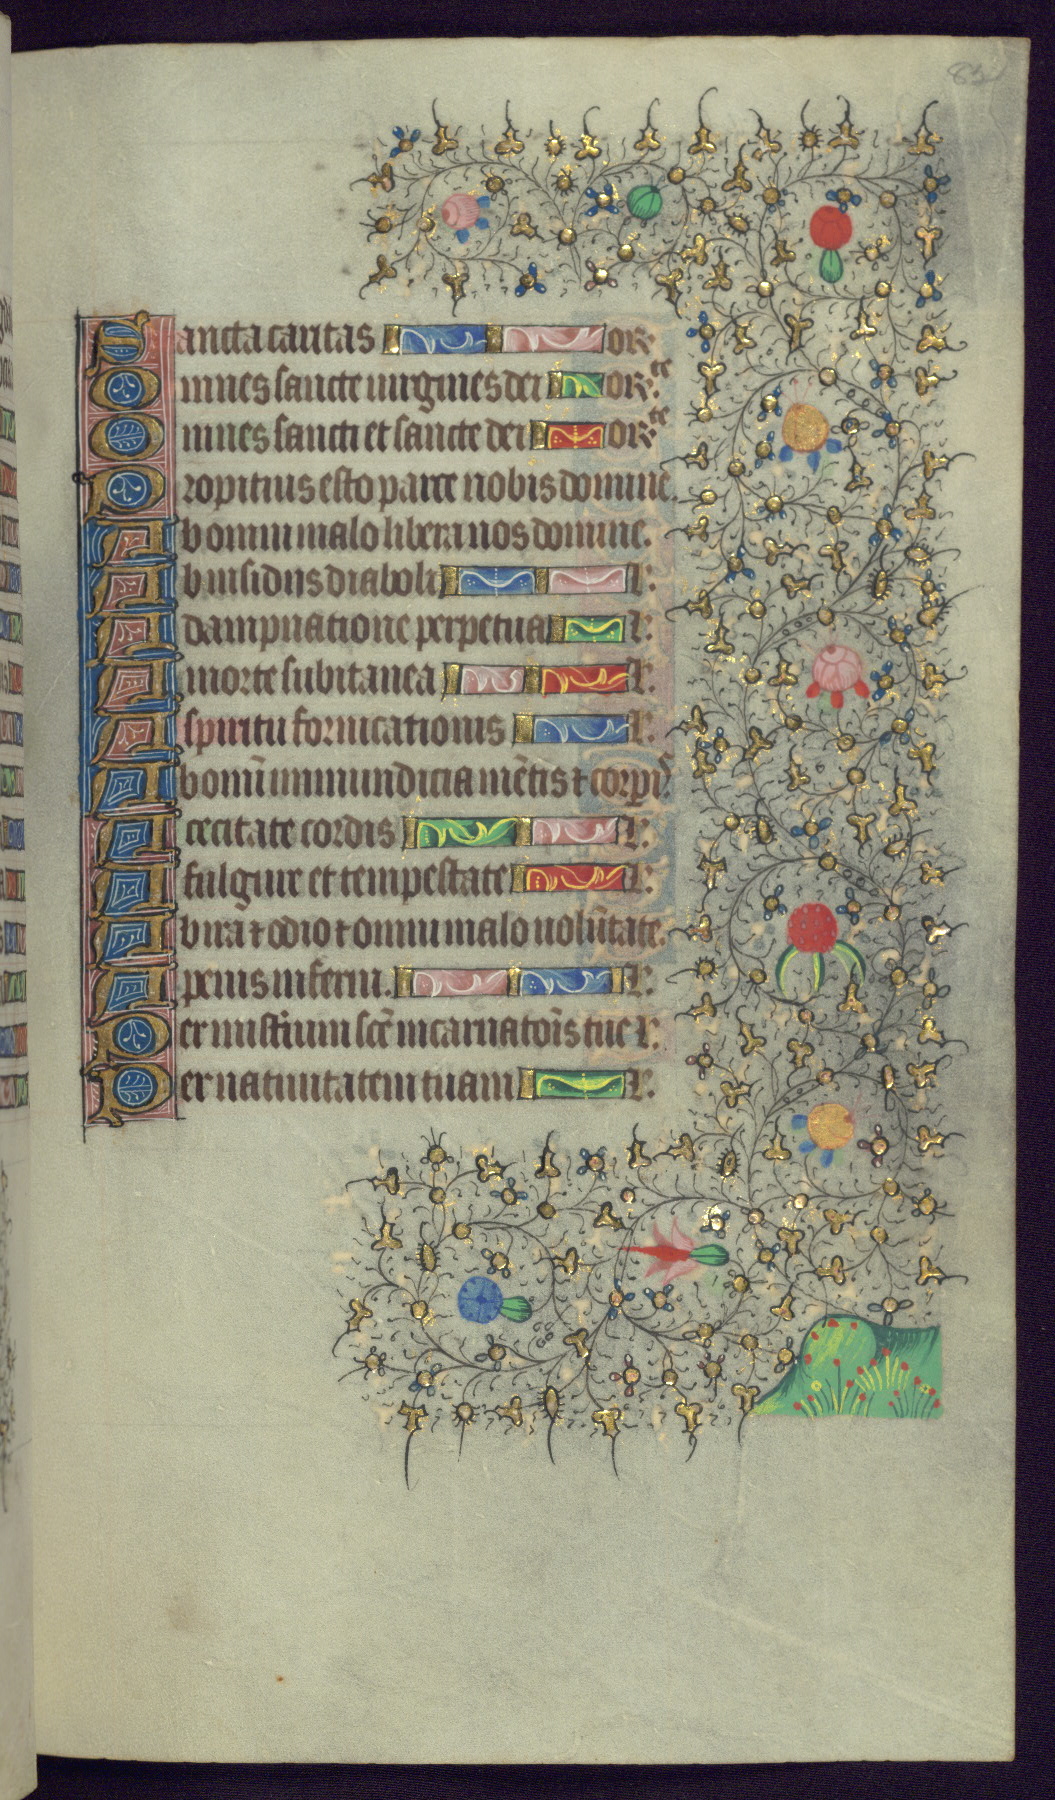 83
Sancta caritas or
Omnes sancte uirgines dei or.te
Omnes sancti et sancte dei or.te
Propitius esto parce nobis domine.
Ab omni malo libera nos domine.
Ab insidiis diaboli l.
A dampnatione perpetua l.
A morte subitanea l.
A spiritu fornicationis l.
Ab omi̅ immundicia me̅tis ⁊ corpis
A cecitate cordis l.
A fulgure et tempestate l.
Ab ira ⁊ odio ⁊ omni malo uolu̅tate.
A penis inferni. l.
Per misteriu̅m sce̅ incarnato̅is tue l.
Per natiuitatem tuam l.